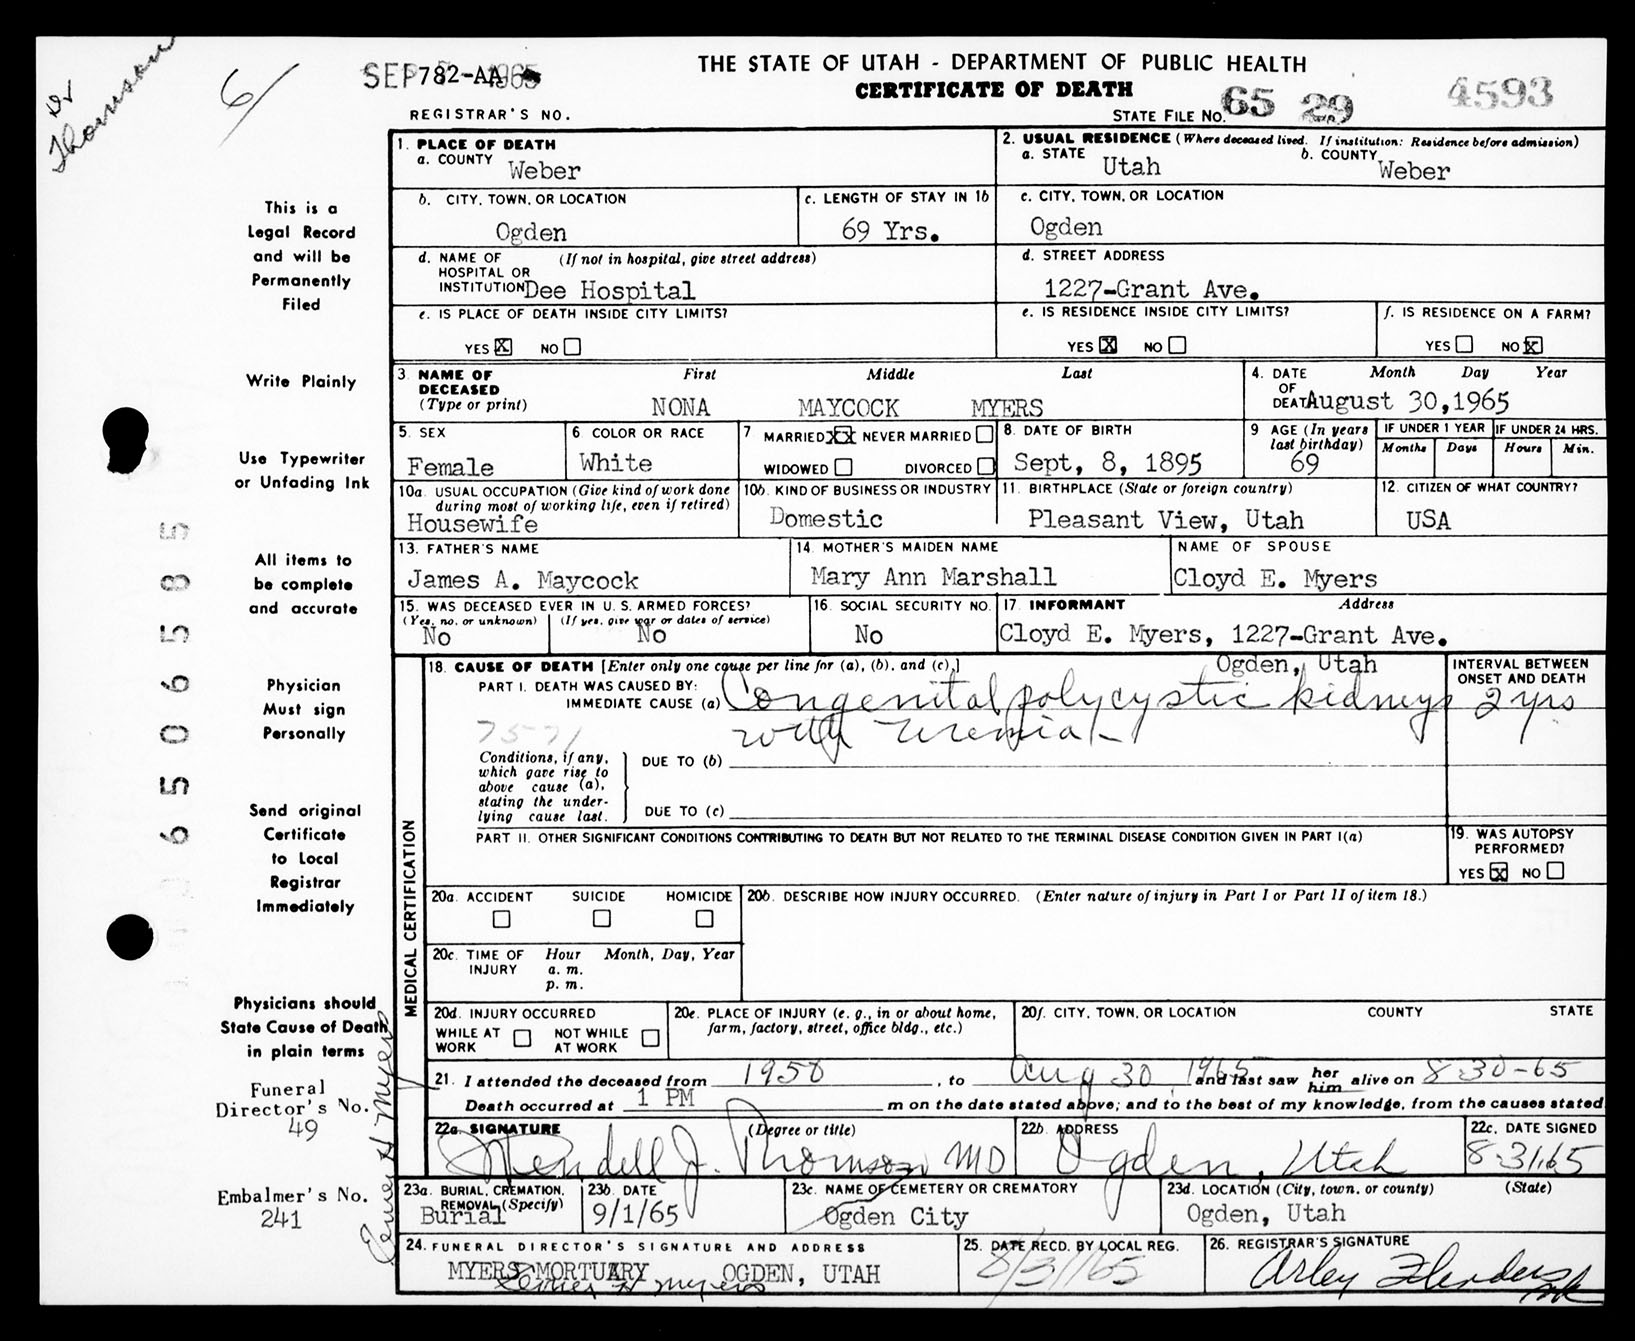 Dr Thomson
6
SEP 782-AA 1965
REGISTRAR'S NO.
THE STATE OF UTAH - DEPARTMENT OF PUBLIC HEALTH
CERTIFICATE OF DEATH
STATE FILE NO. 65 29 4593
This is a
Legal Record
and will be
Permanently
Filed
Write Plainly
Use Typewriter
or Unfading Ink
All items to
be complete
and accurate
Physician
Must sign
Personally
Send original
Certificate
to Local
Registrar
Immediately
Physicians should
State Cause of Death
in plain terms
Funeral
Director's No.
49
Embalmer's No.
241
65065585
1. PLACE OF DEATH
a. COUNTY Weber
2. USUAL RESIDENCE (Where deceased lived. If institution: Residence before admission)
a. STATE Utah b. COUNTY Weber
b. CITY, TOWN, OR LOCATION Ogden
c. LENGTH OF STAY IN 1b 69 Yrs.
c. CITY, TOWN, OR LOCATION Ogden
d. NAME OF HOSPITAL OR INSTITUTION (If not in hospital, give street address) Dee Hospital
d. STREET ADDRESS 1227-Grant Ave.
e. IS PLACE OF DEATH INSIDE CITY LIMITS?
YES X NO
e. IS RESIDENCE INSIDE CITY LIMITS?
YES X NO
f. IS RESIDENCE ON A FARM?
YES NO X
3. NAME OF DECEASED (Type or print) First Middle Last
NONA MAYCOCK MYERS
4. DATE OF DEATH Month Day Year
August 30,1965
5. SEX Female
6 COLOR OR RACE White
7 MARRIED XX NEVER MARRIED
WIDOWED DIVORCED
8. DATE OF BIRTH Sept, 8, 1895
9 AGE (In years last birthday) 69
IF UNDER 1 YEAR Months Days
IF UNDER 24 HRS. Hours Min.
10a. USUAL OCCUPATION (Give kind of work done during most of working life, even if retired) Housewife
10b. KIND OF BUSINESS OR INDUSTRY Domestic
11. BIRTHPLACE (State or foreign country) Pleasant View, Utah
12. CITIZEN OF WHAT COUNTRY? USA
13. FATHER'S NAME James A. Maycock
14. MOTHER'S MAIDEN NAME Mary Ann Marshall
NAME OF SPOUSE Cloyd E. Myers
15. WAS DECEASED EVER IN U. S. ARMED FORCES?
(Yes, no, or unknown) No (If yes, give war or dates of service) No
16. SOCIAL SECURITY NO. No
17. INFORMANT Address
Cloyd E. Myers, 1227-Grant Ave.
Ogden, Utah
MEDICAL CERTIFICATION
18. CAUSE OF DEATH [Enter only one cause per line for (a), (b), and (c).]
PART I. DEATH WAS CAUSED BY:
IMMEDIATE CAUSE (a) Congenital polycystic kidneys
with uremia
7571
INTERVAL BETWEEN ONSET AND DEATH
2 yrs
Conditions, if any, which gave rise to above cause (a), stating the underlying cause last.
DUE TO (b)
DUE TO (c)
PART II. OTHER SIGNIFICANT CONDITIONS CONTRIBUTING TO DEATH BUT NOT RELATED TO THE TERMINAL DISEASE CONDITION GIVEN IN PART I(a)
19. WAS AUTOPSY PERFORMED?
YES X NO
20a. ACCIDENT SUICIDE HOMICIDE
20b. DESCRIBE HOW INJURY OCCURRED. (Enter nature of injury in Part I or Part II of item 18.)
20c. TIME OF INJURY Hour Month, Day, Year
a. m.
p. m.
20d. INJURY OCCURRED
WHILE AT WORK NOT WHILE AT WORK
20e. PLACE OF INJURY (e. g., in or about home, farm, factory, street, office bldg., etc.)
20f. CITY, TOWN, OR LOCATION COUNTY STATE
21. I attended the deceased from 1958, to Aug 30 1965 and last saw her him alive on 8-30-65
Death occurred at 1 PM m on the date stated above; and to the best of my knowledge, from the causes stated
22a. SIGNATURE (Degree or title) Wendell J. Thomson MD
22b. ADDRESS Ogden, Utah
22c. DATE SIGNED 8-31-65
23a. BURIAL, CREMATION, REMOVAL (Specify) Burial
23b. DATE 9/1/65
23c. NAME OF CEMETERY OR CREMATORY Ogden City
23d. LOCATION (City, town, or county) (State) Ogden, Utah
24. FUNERAL DIRECTOR'S SIGNATURE AND ADDRESS
MYERS MORTUARY OGDEN, UTAH
25. DATE RECD. BY LOCAL REG. 8/31/65
26. REGISTRAR'S SIGNATURE Arley Flinders